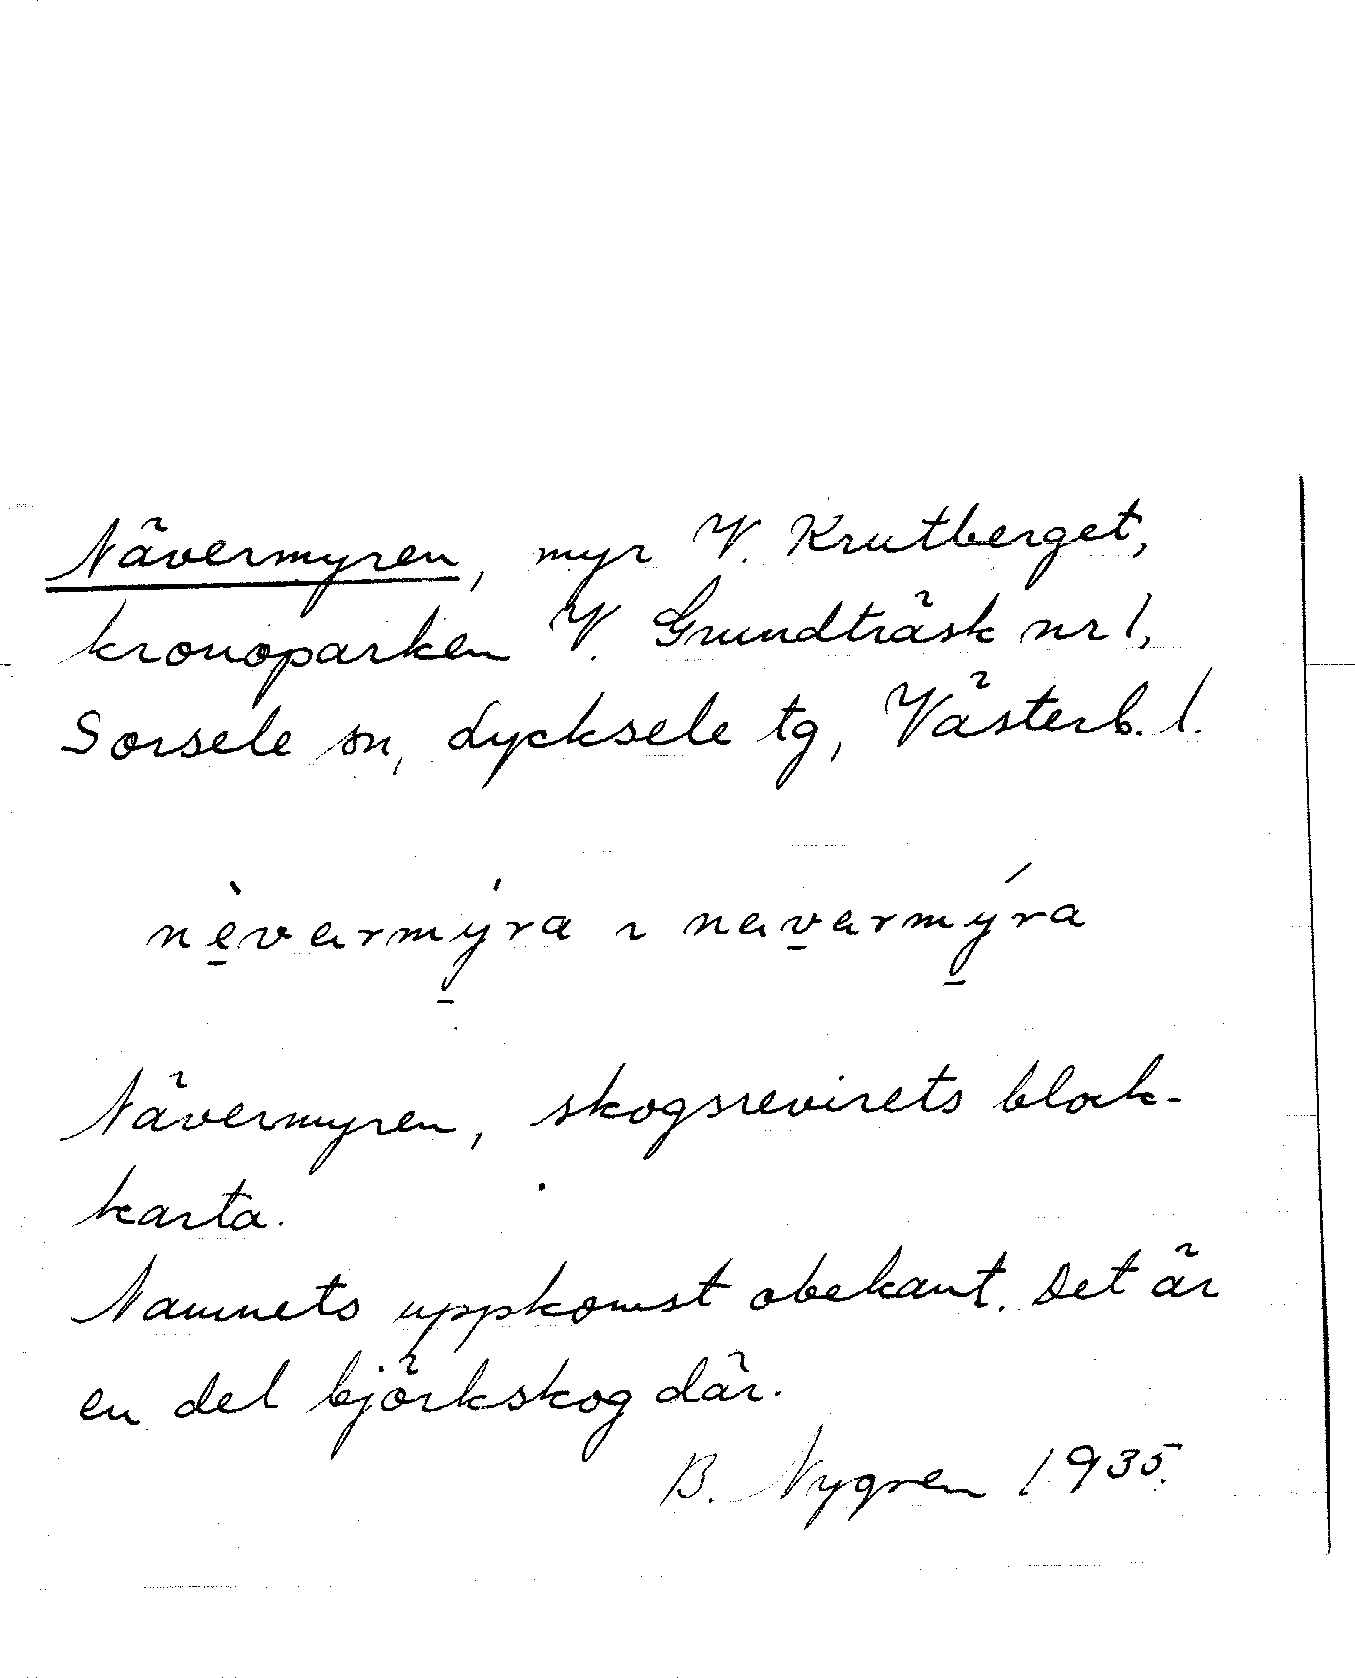 Nävermyren, myr V. Krutberget,
kronoparken V. Grundträsk nr 1,
Sorsele sn, Lycksele tg, Västerb. l.
nèvarmýra
Nävermyren, skogsrevirets block-
karta.
Namnets uppkomst obekant. Det är
en del björkskog där.
B. Nygren 1935.